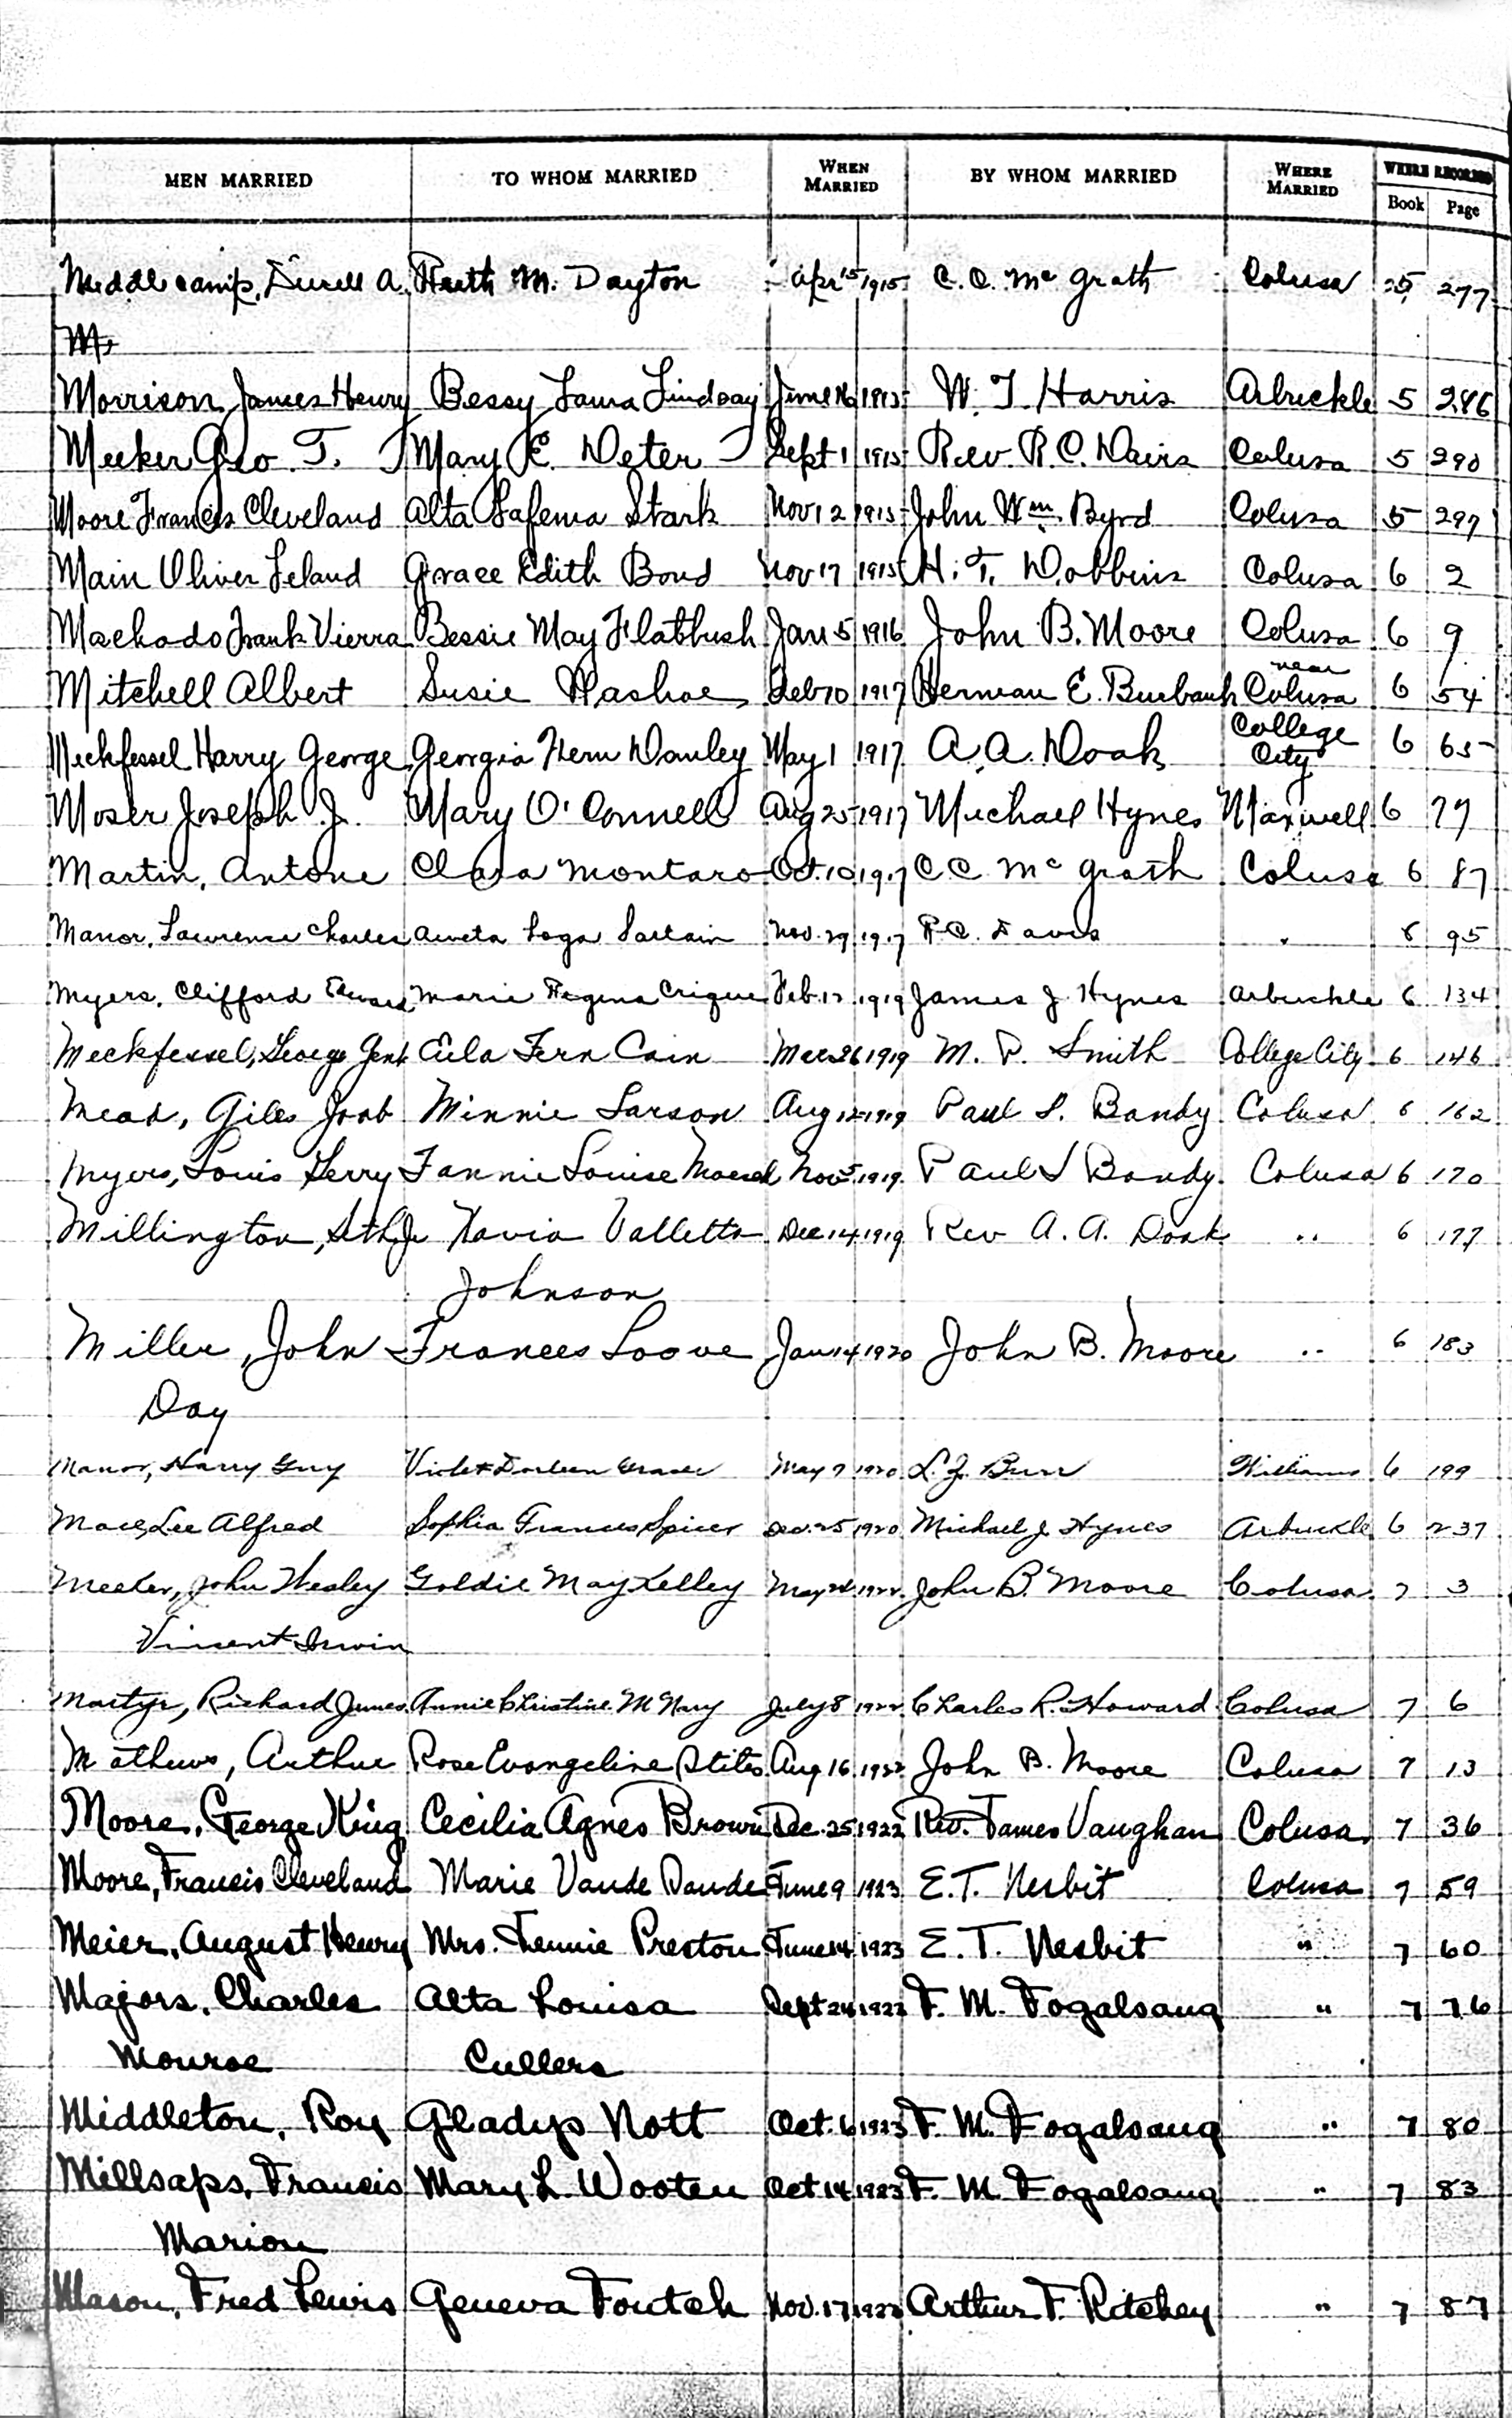 MEN MARRIED TO WHOM MARRIED WHEN MARRIED BY WHOM MARRIED WHERE MARRIED WHERE RECORDED
Book Page
Middlecamp, Durell A. Ruth M. Dayton Apr 15 1915 C. C. Mc Grath Colusa 5 277
Morrison James Henry Bessy Laura Lindsay June 16 1915 W. T. Harris Arbuckle 5 286
Meeker Geo T. Mary E. Deter Sept 1 1915 Rev. R. C. Davis Colusa 5 290
Moore Francis Cleveland Alta Stark Nov 12 1915 John Wm. Byrd Colusa 5 297
Main Oliver Leland Grace Edith Bond Nov 17 1915 H. T. Dobbins Colusa 6 2
Machado Frank Vierra Bessie May Flatbush Jan 5 1916 John B. Moore Colusa 6 9
near
Mitchell Albert Susie Washoe Feb 10 1917 Herman E. Burbank Colusa 6 54
Meckfessel Harry George Georgia Fern Danley May 1 1917 A. A. Doak College City 6 65
Moser Joseph J. Mary O'Connell Aug 25 1917 Michael Hynes Maxwell 6 77
Martin, Antone Clara Montaro Oct. 10 1917 C C Mc Grath Colusa 6 87
Manor, Lawrence Charles Sartain Nov. 29 1917 R.C. Davis " 6 95
Myers, Clifford Edward Marie Regina Feb. 12 1919 James J. Hynes Arbuckle 6 134
Meckfessel, George Gent Eula Fern Cain Mar 26 1919 M. P. Smith College City 6 146
Mead, Giles Joab Minnie Larson Aug 12 1919 Paul S. Bandy Colusa 6 162
Myers, Louis Perry Fannie Louise Nov 5 1919 Paul S Bandy Colusa 6 170
Millington, Seth Jr Navia Valletta Dec 14 1919 Rev A. A. Doak " 6 177
Johnson
Miller, John Frances Loove Jan 14 1920 John B. Moore " 6 183
Day
Manor, Harry Guy Violet Doreen May 7 1920 L. J. Burr Williams 6 199
Mace, Lee Alfred Sophia Frances Spicer Dec. 25 1920 Michael J. Hynes Arbuckle 6 237
Meeker, John Wesley Goldie May Kelley May 24 1922 John B. Moore Colusa 7 3
Vincent Irwin
Martyr, Richard James Annie Christine McNary July 8 1922 Charles R. Howard Colusa 7 6
Mathews, Arthur Rose Evangeline Stites Aug 16 1922 John B. Moore Colusa 7 13
Moore, George King Cecilia Agnes Brown Dec. 25 1922 Rev. James Vaughan Colusa 7 36
Moore, Francis Cleveland Marie Vande Dande June 9 1923 E. T. Nesbit Colusa 7 59
Meier, August Henry Mrs. Jennie Preston June 14 1923 E. T. Nesbit " 7 60
Majors, Charles Alta Louisa Sept 24 1923 F. M. Fogalsang " 7 76
Monroe Cullers
Middleton, Roy Gladys Nott Oct. 6 1923 F. M. Fogalsang " 7 80
Millsaps, Francis Mary L. Wooten Oct 14 1923 F. M. Fogalsang " 7 83
Marion
Mason, Fred Lewis Geneva Foutch Nov. 17 1923 Arthur F. Ritchey " 7 87